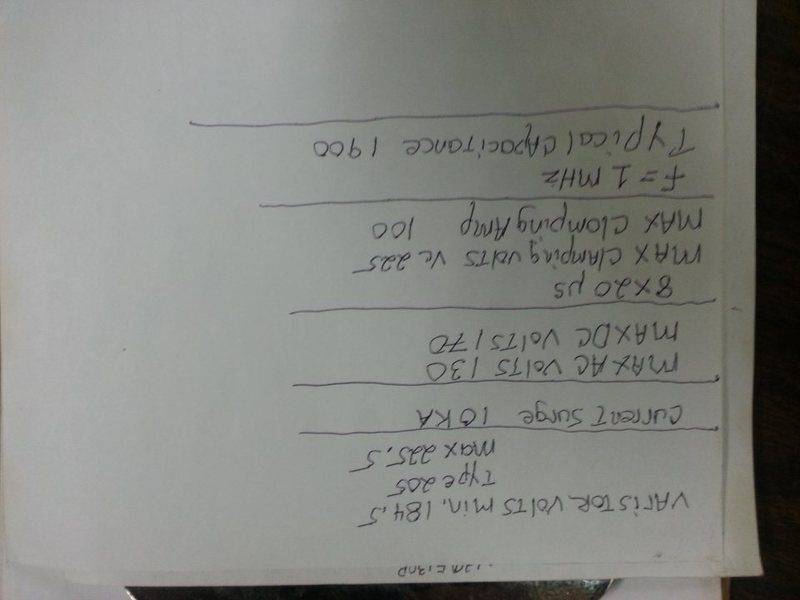 Varistor Volts min. 184.5
Type 205
max 225.5
Current Surge 10 KA
MAX AC Volts 130
MAX DC Volts 170
8 x 20 µs
MAX Clamping Volts Vc 225
MAX Clomping Amp 100
F = 1 MHz
Typical Capacitance 1900